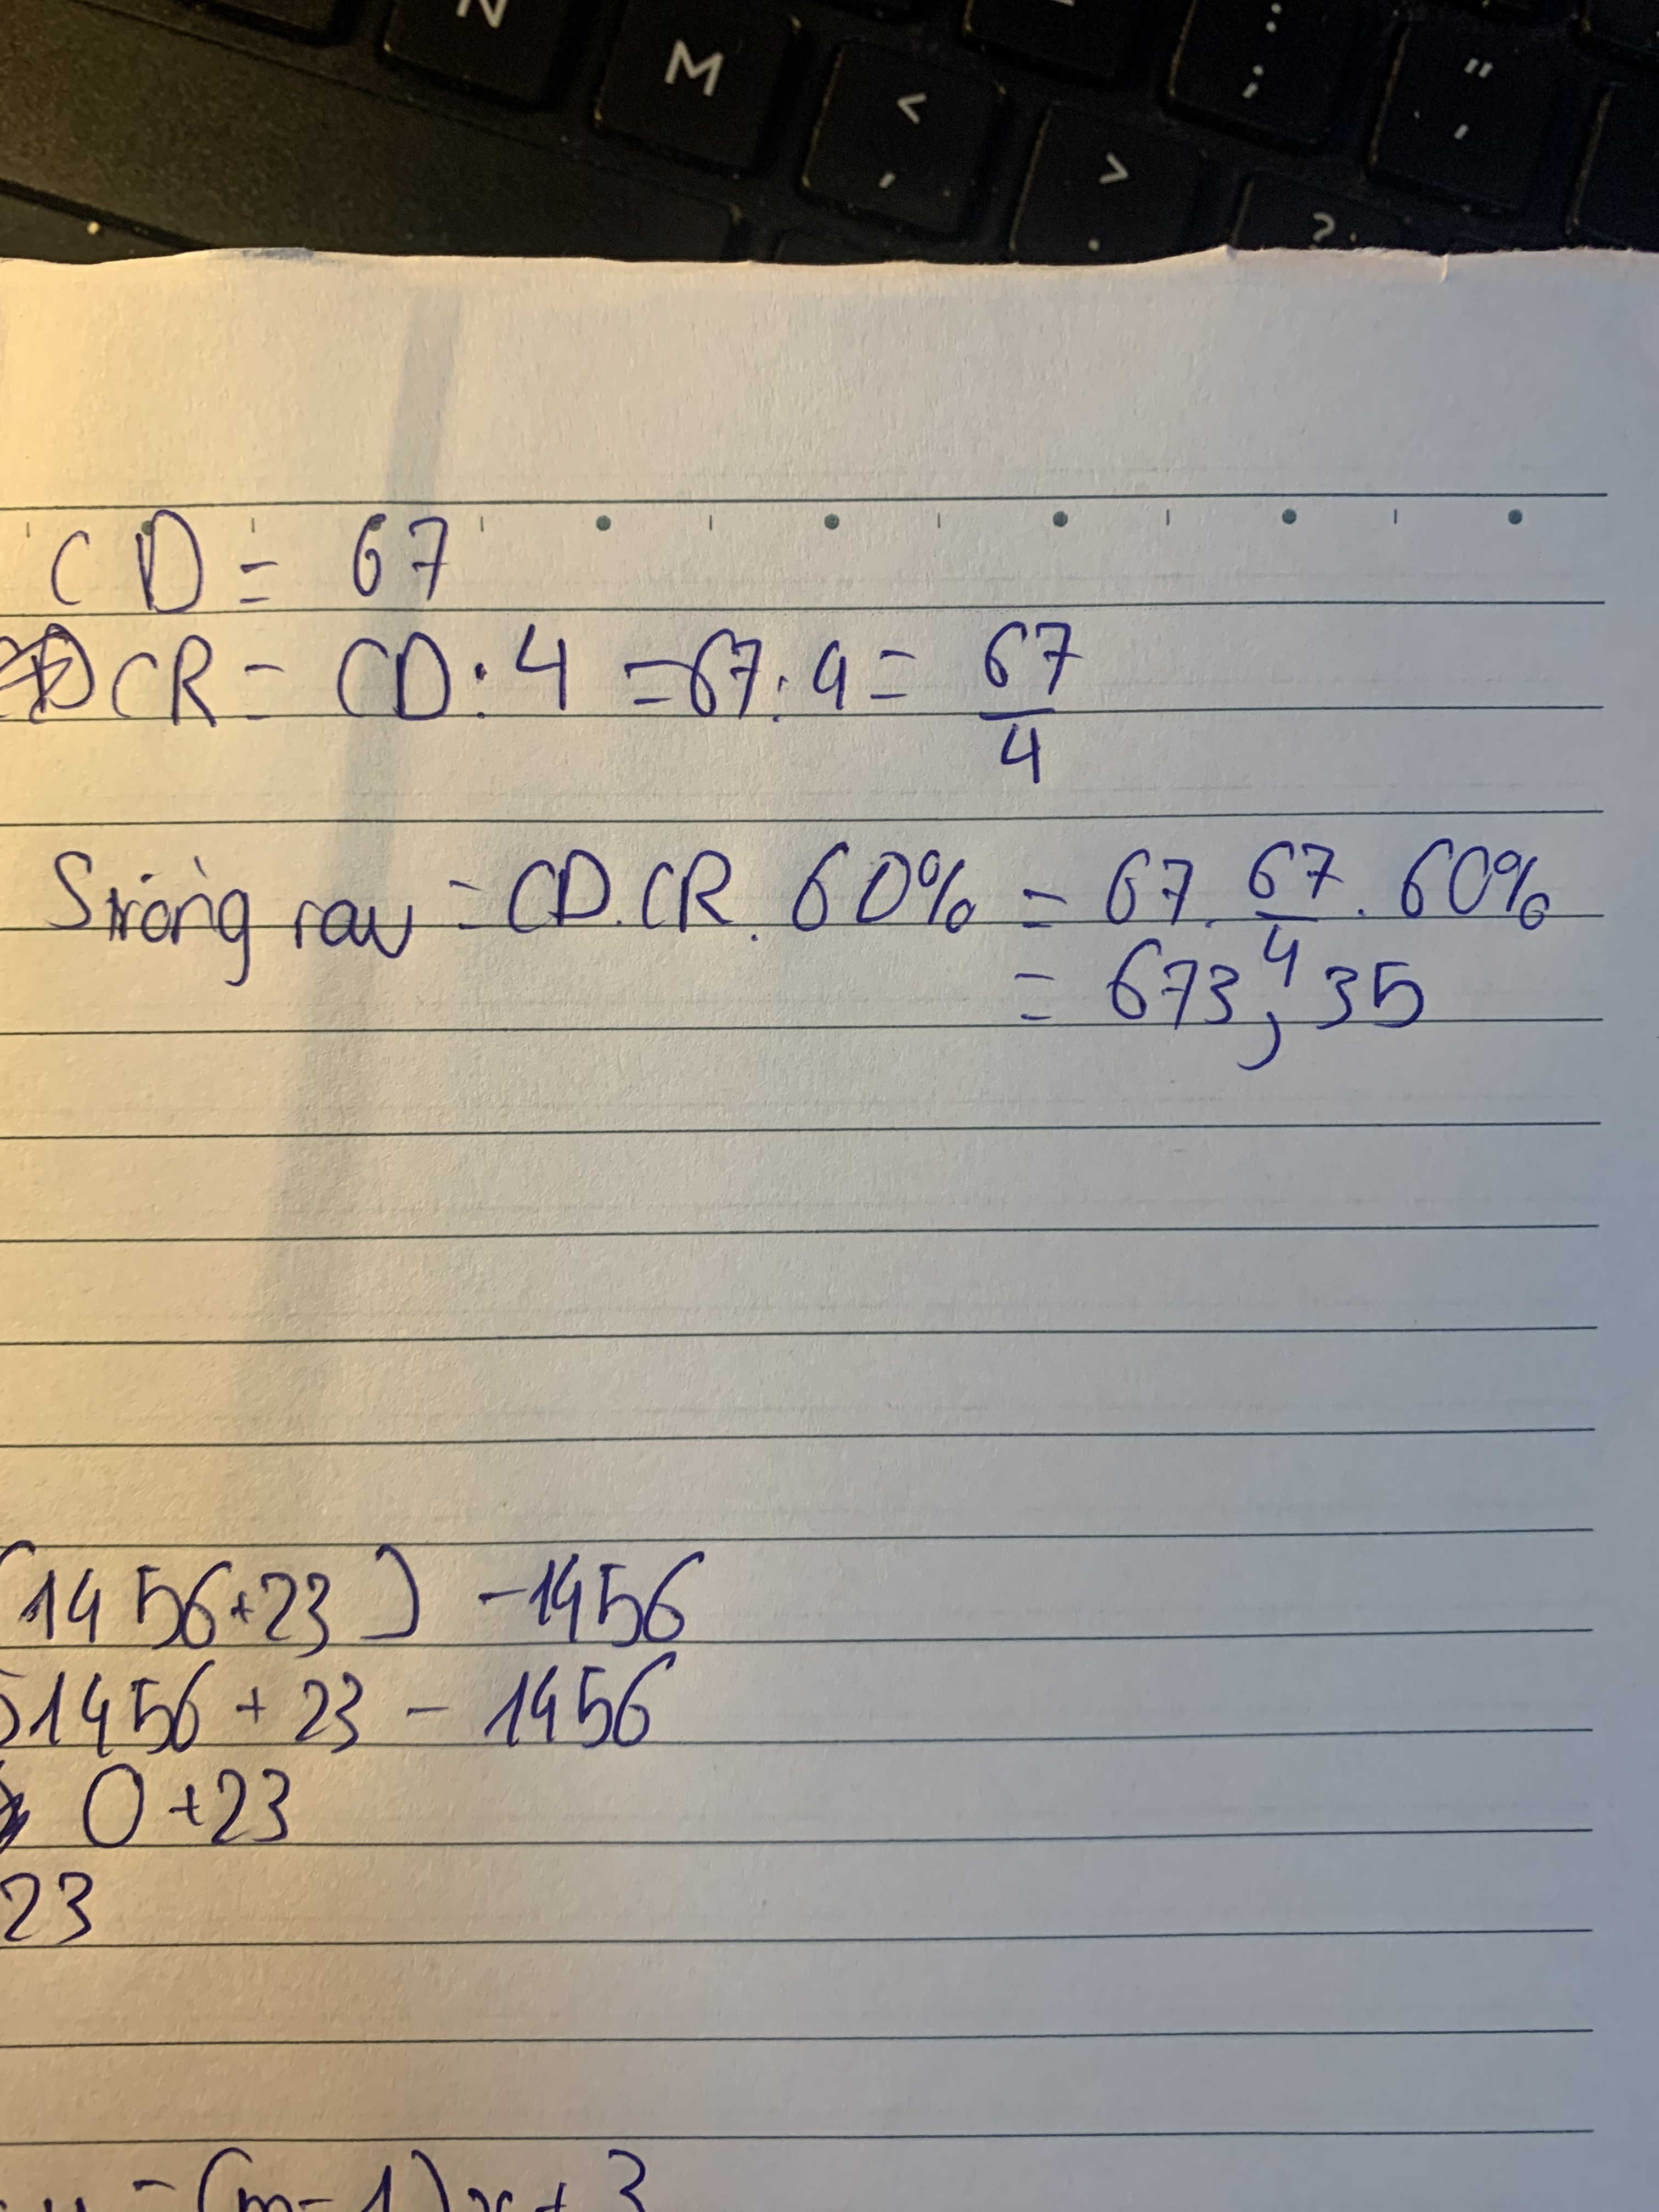 N M < , > . : ; " ' ?
CD = 67
CR = CD : 4 = 67 : 4 = 67/4
Strồng rau = CD . CR . 60% = 67 . 67/4 . 60%
= 673,35
(1456+23) - 1456
1456 + 23 - 1456
0 + 23
23
= (m-1)x + 3